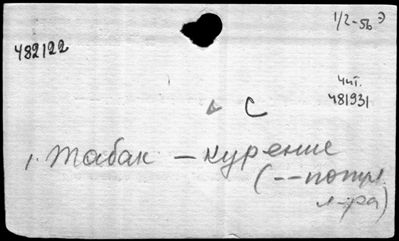 1/2-56 э
482122
чит.
481931
с
1. Табак – курение
(--попул.
л-ра)